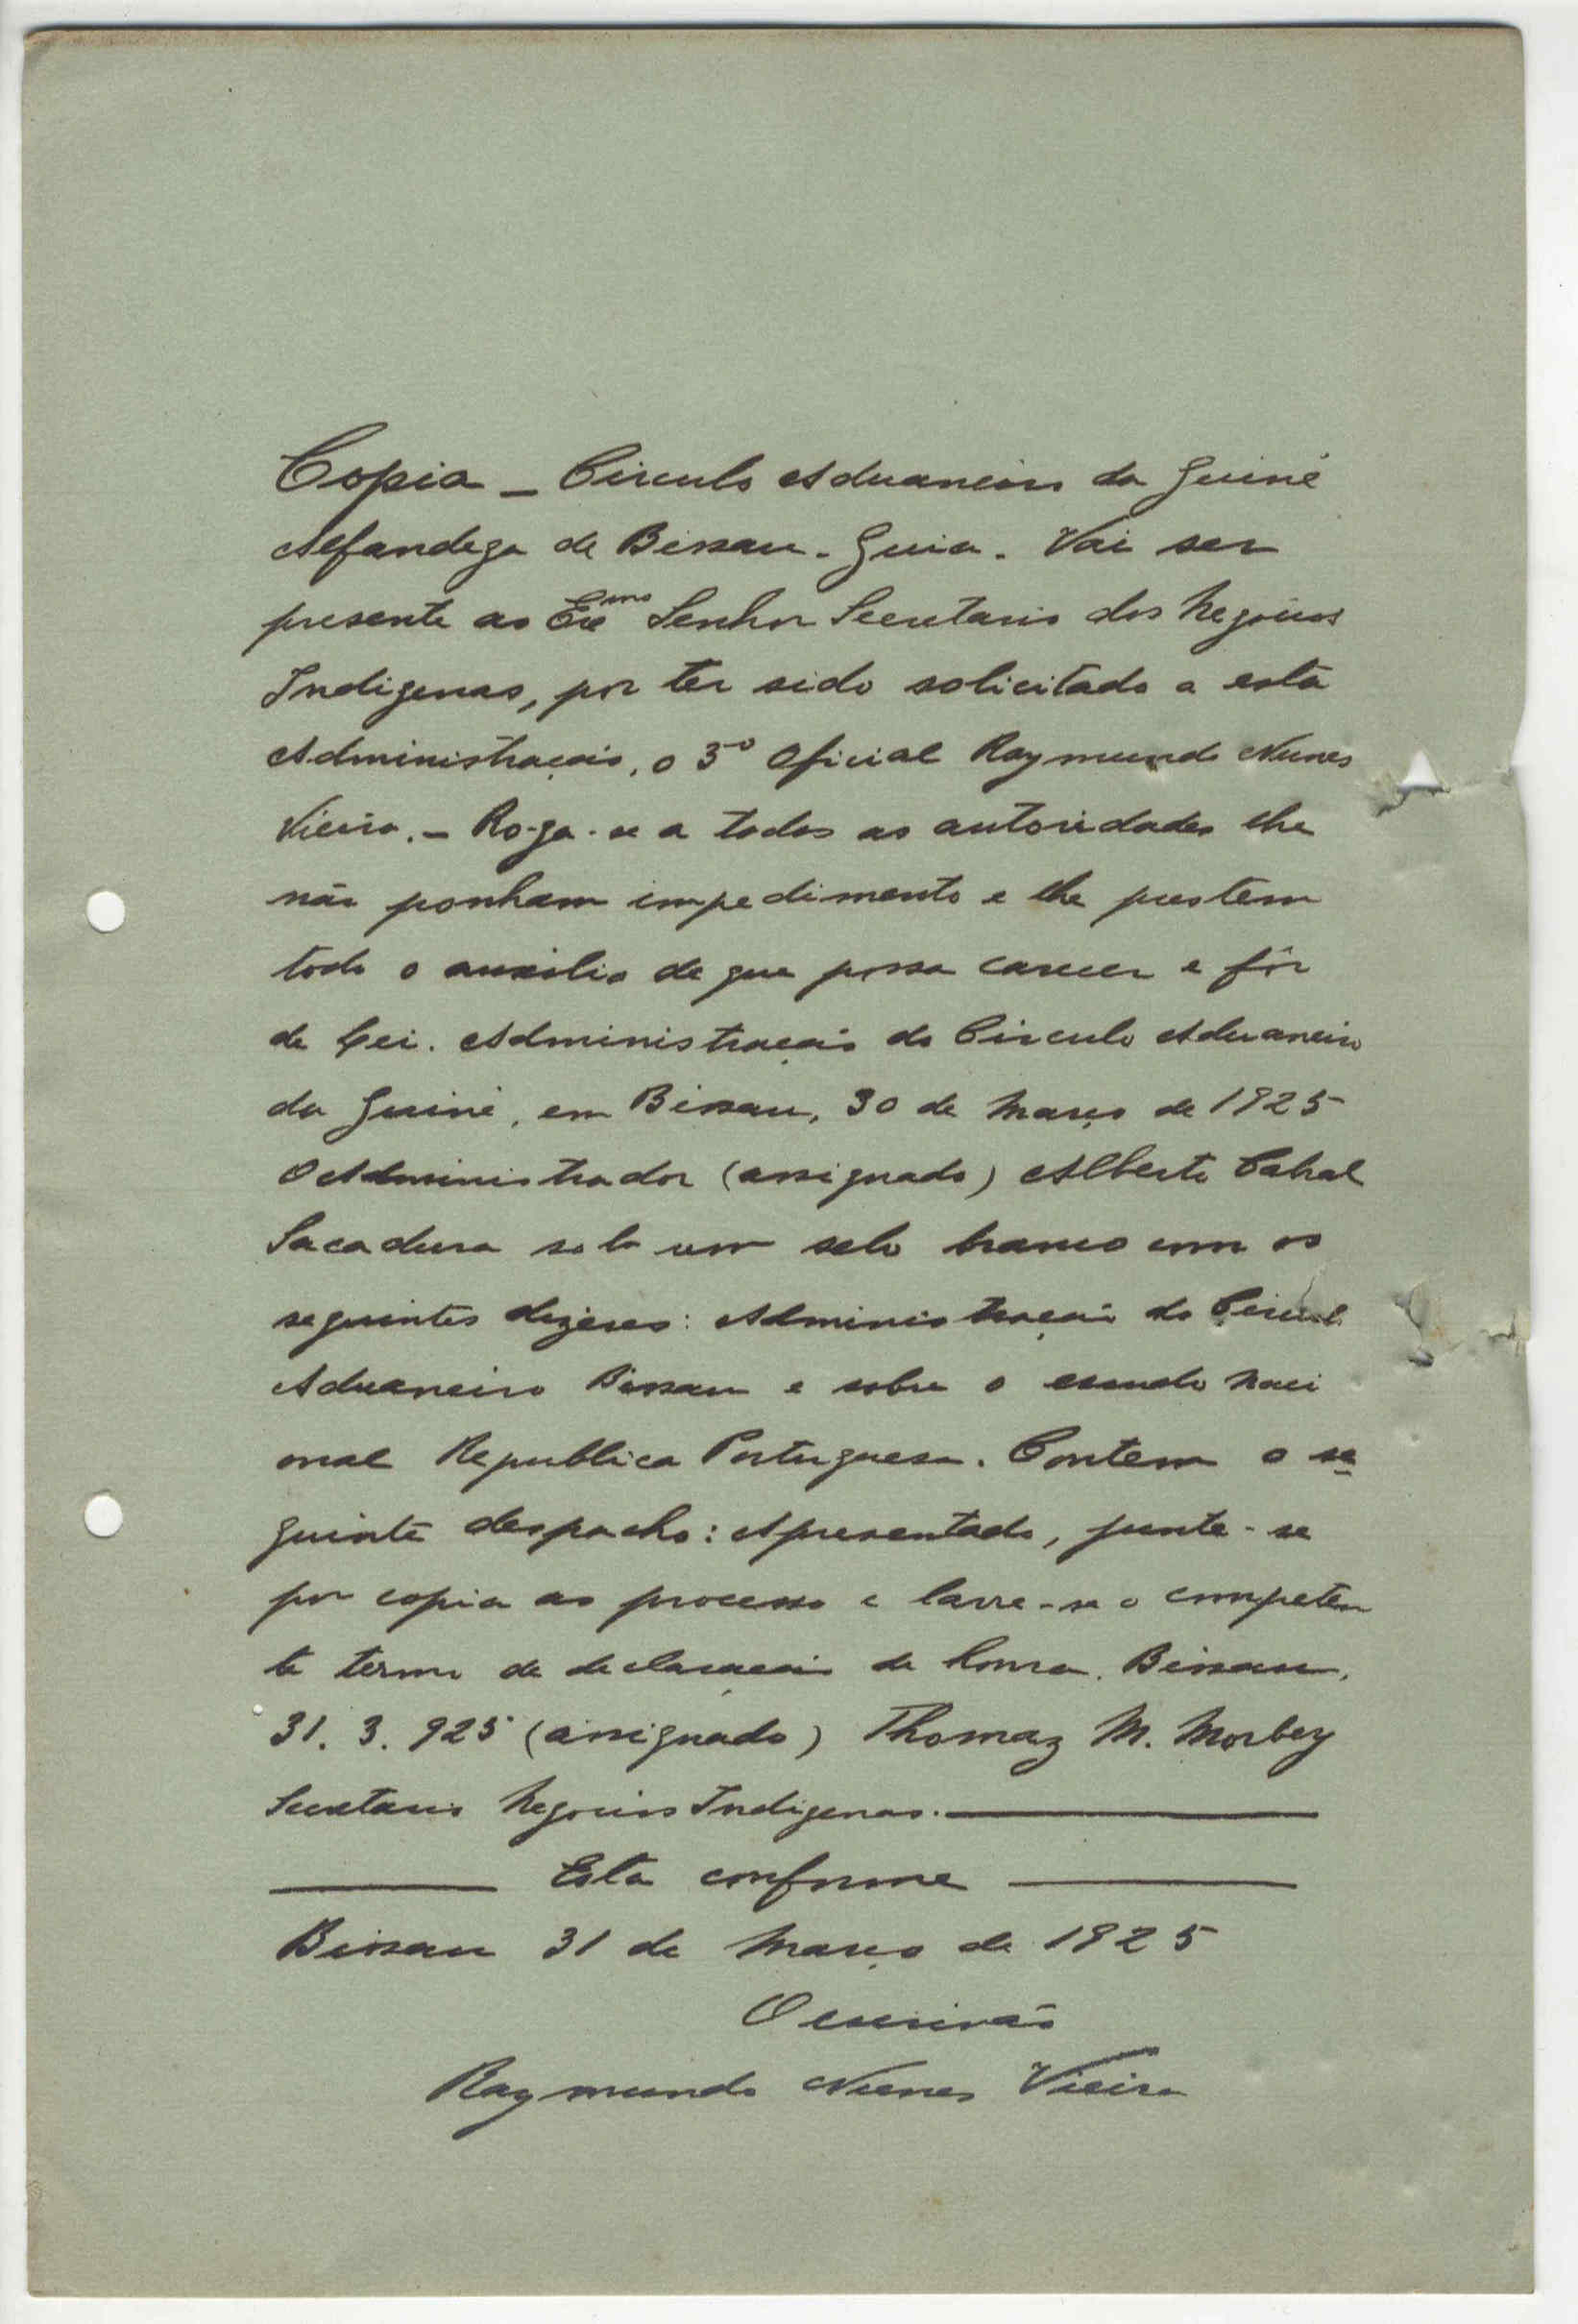 Copia _ Circulo Aduaneiro da Guiné
Alfandega de Bissau. Guia. Vai ser
presente ao Exmo Senhor Secretario dos Negocios
Indigenas, por ter sido solicitado a esta
Administração, o 3º Oficial Raymundo Nunes
Vieira. _ Ro-ga-se a todas as autoridades lhe
não ponham impedimento e lhe prestem
todo o auxilio de que possa carecer e fôr
de lei. Administração do Circulo Aduaneiro
da Guiné, em Bissau, 30 de Março de 1925
O Administrador (assignado) Alberto Cabral
Sacadura sob um selo branco com os
seguintes dizeres: Administração do Circulo
Aduaneiro Bissau e sobre o escudo naci
onal Republica Portuguesa. Contem o se
guinte despacho: Apresentado, junte-se
por copia ao processo e lavre-se o competen
te termo de declaração de honra. Bissau,
31. 3. 925 (assignado) Thomaz M. Morbey
Secretario Negocios Indigenas.
Esta conforme
Bissau 31 de Março de 1925
O escrivão
Raymundo Nunes Vieira